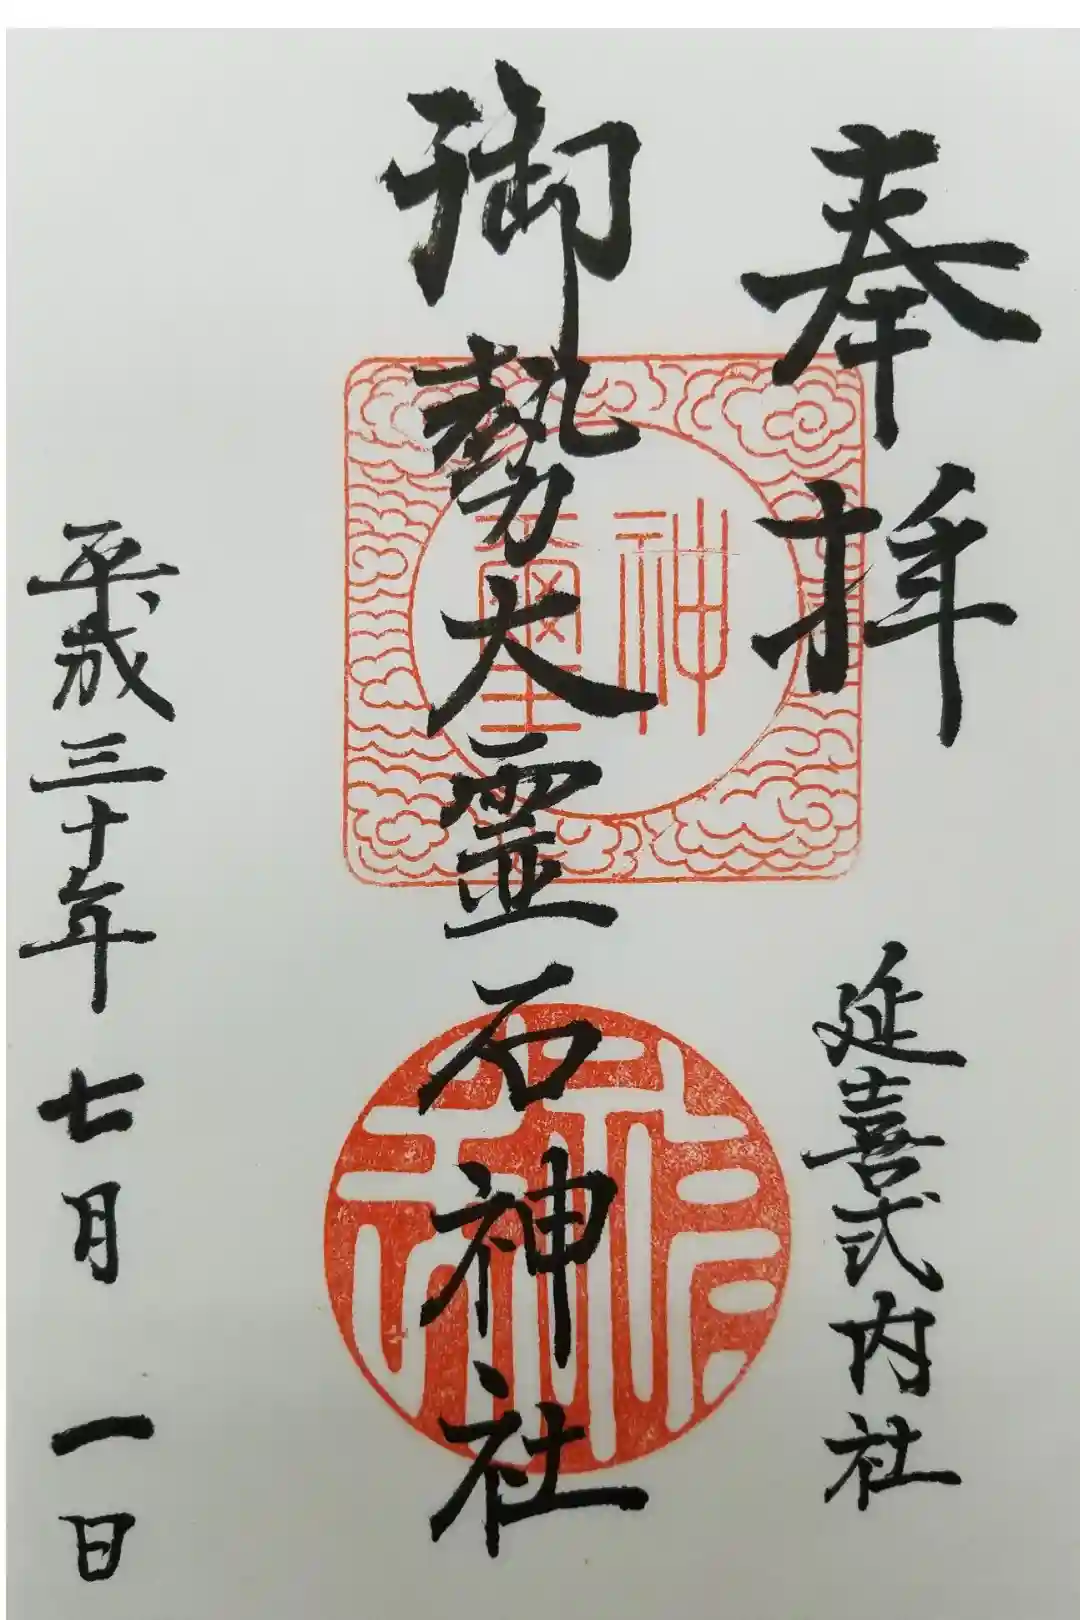 奉拝
延喜式内社
御勢大霊石神社
神璽
平成三十年七月一日